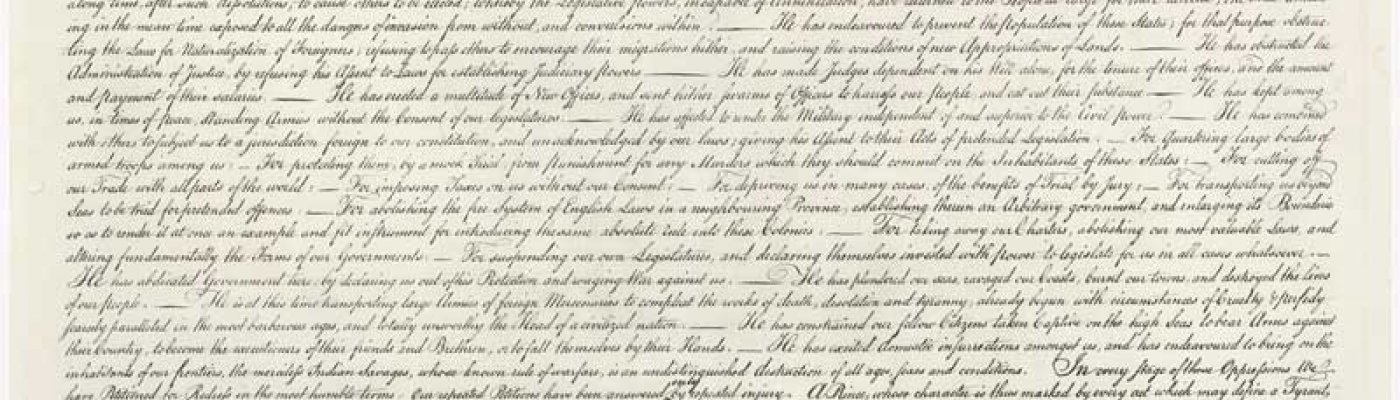 along time, after such dissolutions, to cause others to be elected; whereby the Legislative powers, incapable of Annihilation, have returned to the People at large for their exercise; the State
ing in the mean time exposed to all the dangers of invasion from without, and convulsions within. — He has endeavoured to prevent the population of these States; for that purpose obstruc-
ting the Laws for Naturalization of Foreigners; refusing to pass others to encourage their migrations hither, and raising the conditions of new Appropriations of Lands. — He has obstructed the
Administration of Justice, by refusing his Assent to Laws for establishing Judiciary powers — He has made Judges dependent on his Will alone, for the tenure of their offices, and the amount
and payment of their salaries. — He has erected a multitude of New Offices, and sent hither swarms of Officers to harrass our People, and eat out their substance. — He has kept among
us, in times of peace, Standing Armies without the Consent of our legislatures. — He has affected to render the Military independent of and superior to the Civil power. — He has combined
with others to subject us to a jurisdiction foreign to our constitution, and unacknowledged by our laws; giving his Assent to their Acts of pretended Legislation: — For Quartering large bodies of
armed troops among us: — For protecting them, by a mock Trial, from punishment for any Murders which they should commit on the Inhabitants of these States: — For cutting off
our Trade with all parts of the world: — For imposing Taxes on us without our Consent: — For depriving us in many cases, of the benefits of Trial by Jury: — For transporting us beyond
Seas to be tried for pretended offences — For abolishing the free System of English Laws in a neighbouring Province, establishing therein an Arbitrary government, and enlarging its Boundaries
so as to render it at once an example and fit instrument for introducing the same absolute rule into these Colonies: — For taking away our Charters, abolishing our most valuable Laws, and
altering fundamentally the Forms of our Governments: — For suspending our own Legislatures, and declaring themselves invested with power to legislate for us in all cases whatsoever. —
He has abdicated Government here, by declaring us out of his Protection and waging War against us. — He has plundered our seas, ravaged our Coasts, burnt our towns, and destroyed the lives
of our people. — He is at this time transporting large Armies of foreign Mercenaries to compleat the works of death, desolation and tyranny, already begun with circumstances of Cruelty & perfidy
scarcely paralleled in the most barbarous ages, and totally unworthy the Head of a civilized nation. — He has constrained our fellow Citizens taken Captive on the high Seas to bear Arms against
their Country, to become the executioners of their friends and Brethren, or to fall themselves by their Hands. — He has excited domestic insurrections amongst us, and has endeavoured to bring on the
inhabitants of our frontiers, the merciless Indian Savages, whose known rule of warfare, is an undistinguished destruction of all ages, sexes and conditions. In every stage of these Oppressions We
have Petitioned for Redress in the most humble terms: Our repeated Petitions have been answered only by repeated injury. A Prince, whose character is thus marked by every act which may define a Tyrant,